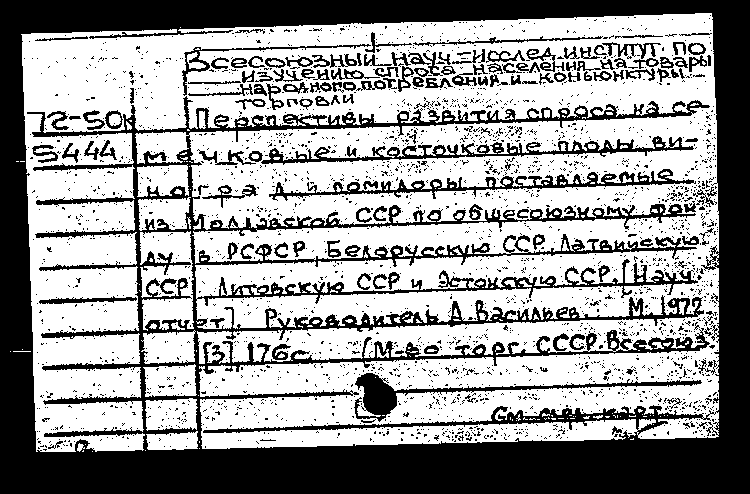 Всесоюзный науч.-исслед. институт по
изучению спроса населения на товары
народного потребления и конъюнктуры
торговли
72-50к Перспективы развития спроса на се-
5444 мечковые и косточковые плоды, ви-
ноград и помидоры, поставляемые
из Молдавской ССР по общесоюзному фон
ду в РСФСР, Белорусскую ССР, Латвийскую
ССР, Литовскую ССР и Эстонскую ССР. [Науч.
отчет]. Руководитель Д. Васильев. М., 1972
[3], 176 с. (М-во торг. СССР. Всесоюз.
См. след. карт.